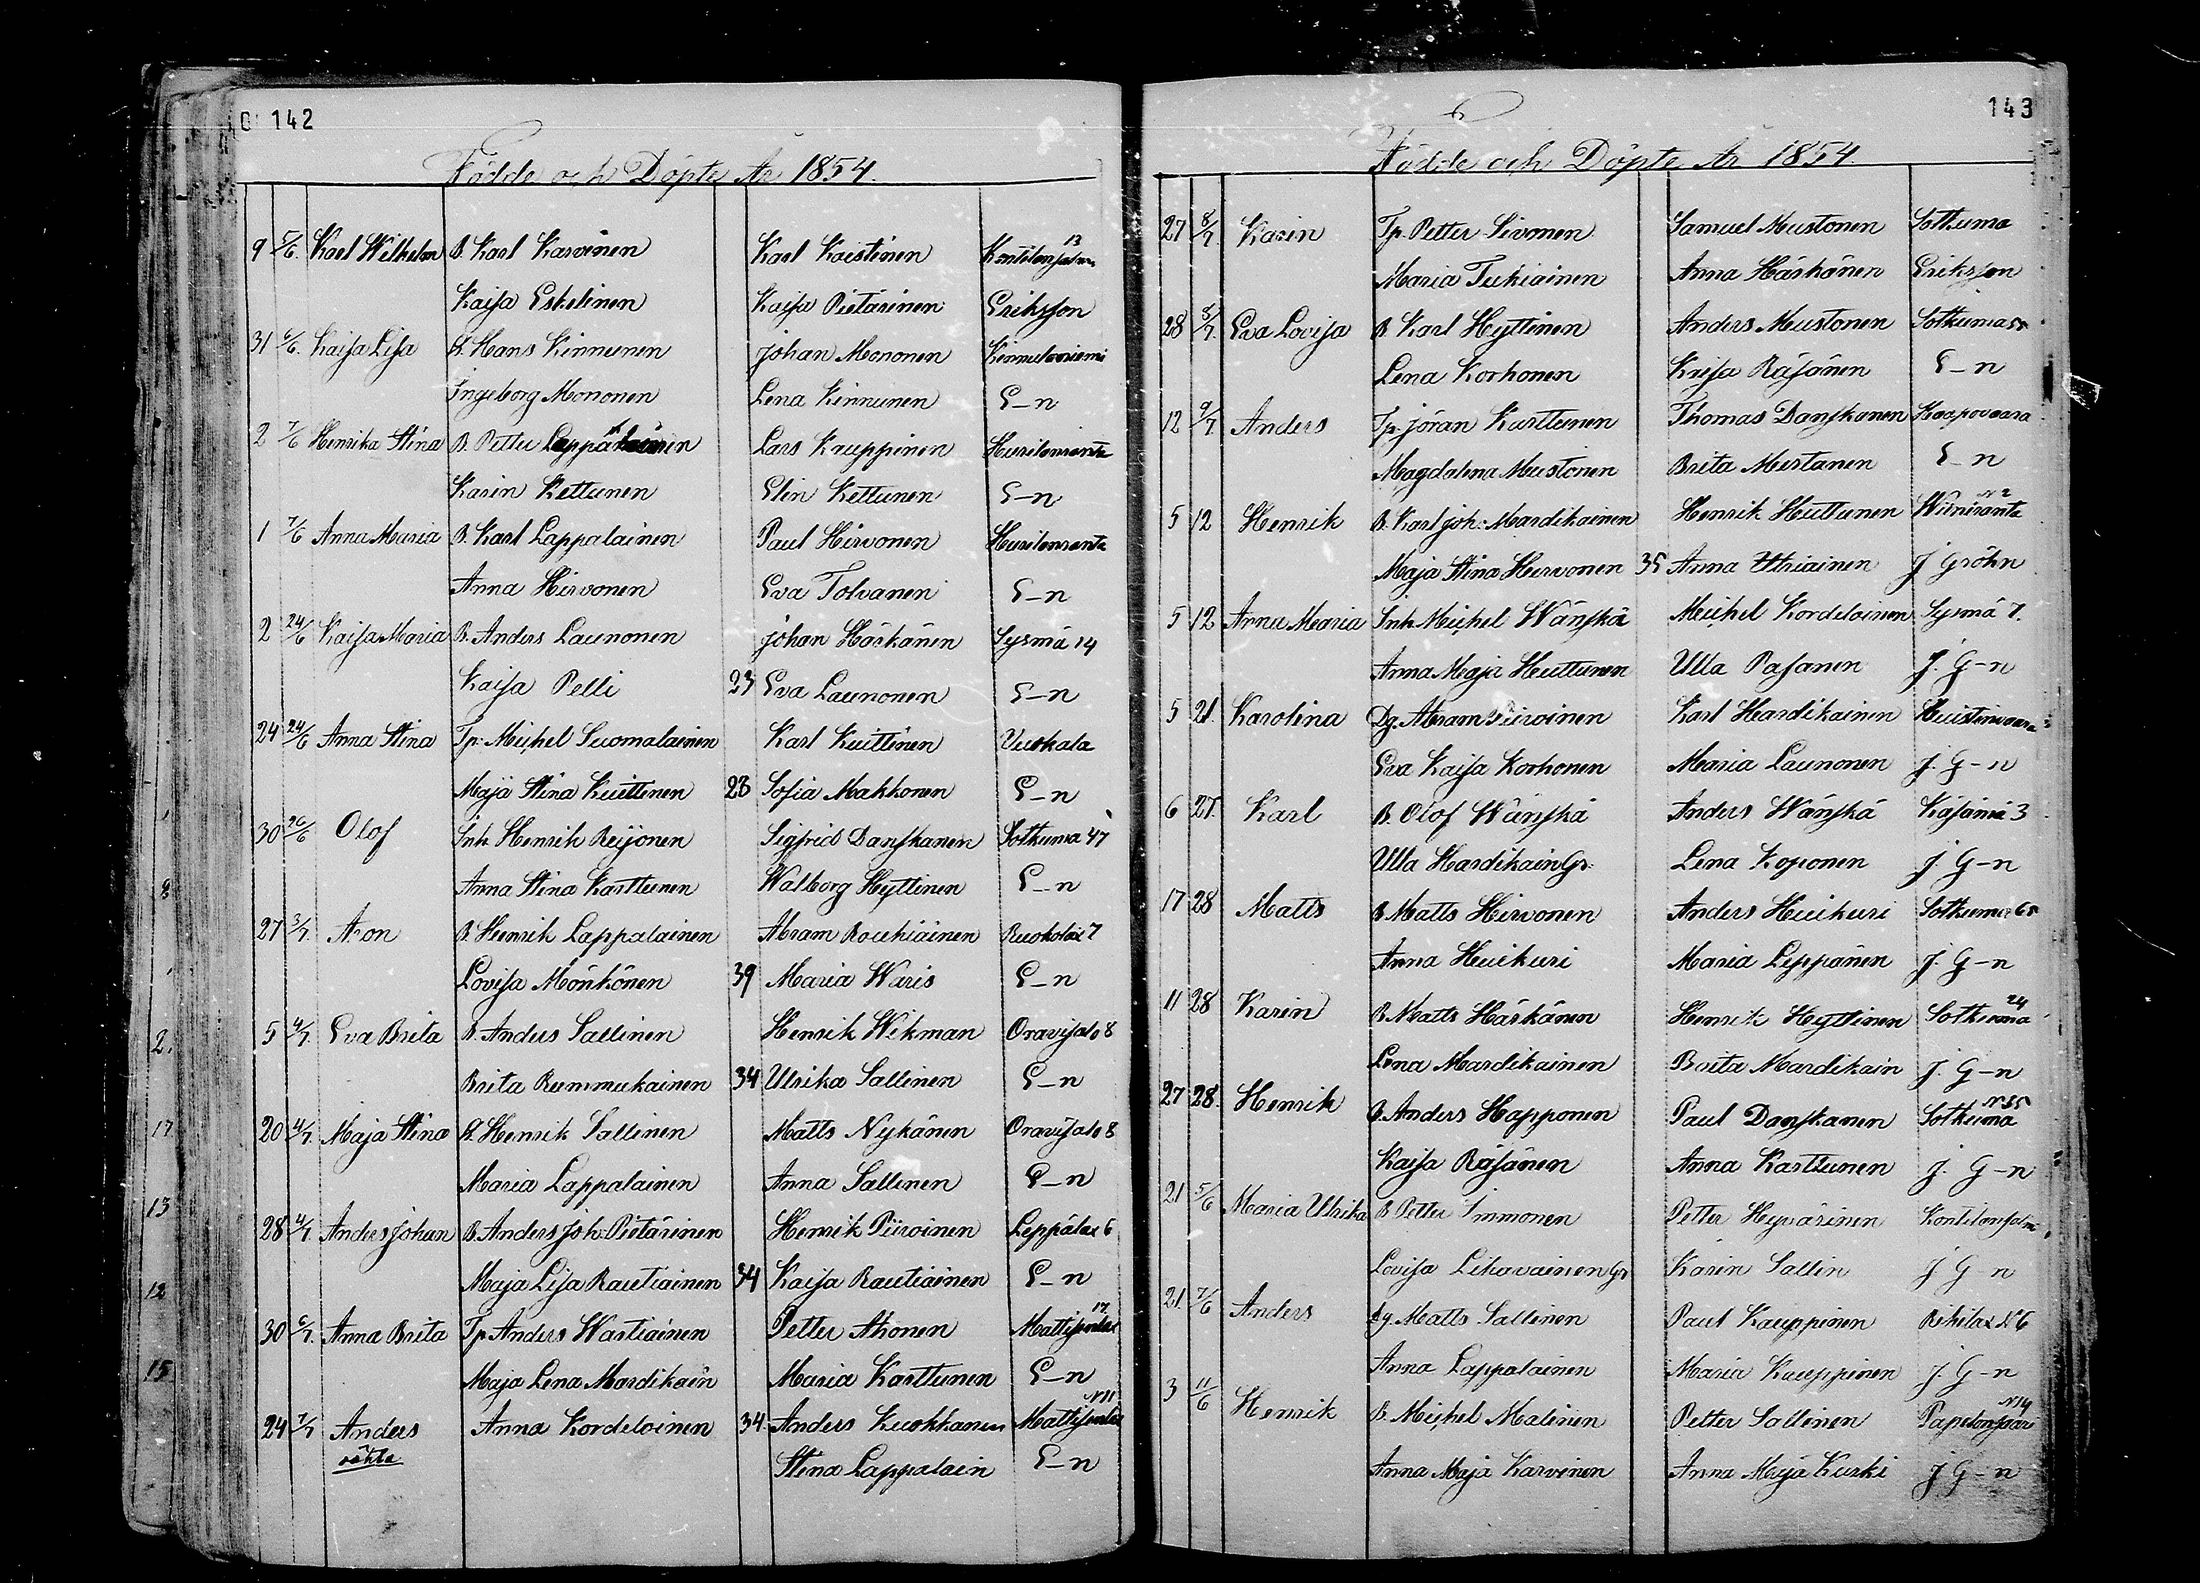 142
Födde och Döpte År 1854.
9 5/6. Karl Wilhelm B. Karl Karvinen Karl Kaistinen Kontilonsalmi 13
Kaisa Eskelinen Kaisa Pietarinen Eriksson
31 6/6. Kaisa Lisa B. Hans Kinnunen Johan Mononen Kinnulanniemi
Ingeborg Mononen Lena Kinnunen E–n
2 7/6 Henrika Stina B. Petter Lappalainen Lars Kauppinen Huvilanranta
Karin Kettunen Elin Kettunen E–n
1 7/6 Anna Maria B. Karl Lappalainen Paul Hirvonen
Anna Hirvonen Eva Tolvanen E–n
2 24/6 Kaisa Maria B. Anders Launonen Johan Härkänen Sysmä 14
Kaisa Pelli 23 Eva Launonen E–n
24 24/6 Anna Stina Tp. Michel Suomalainen Karl Kuittinen Vuokala
Maja Stina Kuittinen 23 Sofia Makkonen E–n
30 26/6 Olof Inh. Henrik Reijonen Sigfrid Danskanen Sotkuma 47
Anna Stina Karttunen Walborg Hyttinen E–n
27 3/7. Aron B. Henrik Lappalainen Abram Rouhiainen Ruokolax 7
Lovisa Mönkönen 39 Maria Waris E–n
5 4/7. Eva Brita B. Anders Sallinen Henrik Wikman Oravisalo 8
Brita Rummukainen 34 Ulrika Sallinen E–n
20 4/7. Maja Stina B. Henrik Sallinen Matts Nykänen Oravisalo 8
Maria Lappalainen Anna Sallinen E–n
28 4/7. Anders Johan B. Anders Joh: Pietarinen Henrik Piiroinen Leppälax 6
Maja Lisa Rautiainen 34 Kaisa Rautiainen E–n
30 6/7. Anna Brita Tp. Anders Wartiainen Petter Ahonen 17
Maja Lena Mardikain Maria Karttunen E–n
24 7/7 Anders Anna Kordeloinen 34. Anders Kuokkanen N11
oäkta Stina Lappalain E–n
2.
17
13
12
15
143
Födde och Döpte År 1854.
27 8/7. Karin Tp. Petter Sivonen Samuel Mustonen Sotkuma
Maria Tukiainen Anna Härkönen Eriksson
28 8/7. Eva Lovisa B. Karl Hyttinen Anders Mustonen Sotkuma 55
Lena Korhonen Kaisa Räsänen E–n
12 9/7 Anders Tp. Jöran Karttunen Thomas Danskanen Haapovaara
Magdalena Mustonen Brita Mertanen E–n
5 12 Henrik B. Karl Joh: Mardikainen Henrik Huttunen Wiiniranta N2
Maja Stina Hirvonen 35 Anna Utriainen J Gröhn
5 12 Anna Maria Inh. Michel Wänskä Michel Kordeloinen Sysmä 7.
Anna Maja Huttunen Ulla Pasanen J. G–n
5 21. Karolina Dg. Abram Piiroinen Karl Hardikainen Huistinvaara
Eva Kaisa Korhonen Maria Launonen J. G–n
6 27. Karl B. Olof Wänskä Anders Wänskä Käsämä 3
Ulla Hardikain Gr. Lena Koponen J. G–n
17 28 Matts B Matts Hirvonen Anders Huikuri Sotkuma 65
Anna Huikuri Maria Leppänen J. G–n
11 28 Karin B. Matts Härkänen Henrik Hyttinen Sotkuma 24
Lena Mardikainen Brita Mardikain J. G–n
27 28. Henrik B. Anders Happonen Paul Danskanen Sotkuma N55
Kaisa Räsänen Anna Karttunen J. G–n
21 5/6 Maria Ulrika B Petter Immonen Petter Hyvärinen Kontilonsalmi
Lovisa Likavainen Gr Karin Sallin J G–n
21. 7/6 Anders Dg. Matts Sallinen Paul Kauppinen Rikilax N6
Anna Lappalainen Maria Kauppinen J. G–n
3 11/6 Henrik B. Michel Malinen Petter Sallinen Papelonsaari N14
Anna Maja Karvinen Anna Maja Kurki J G–n